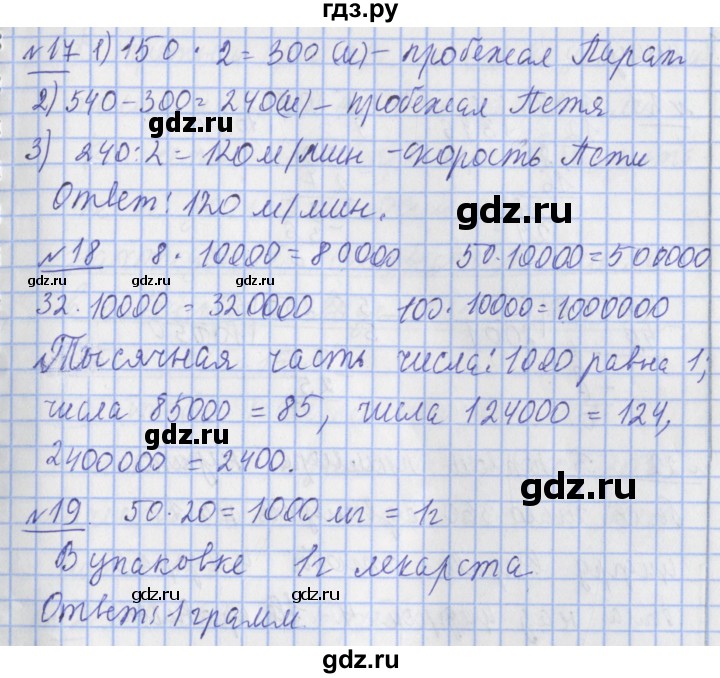 гдз.ру
№17 1) 150 · 2 = 300 (м) – пробежал Пират
2) 540 – 300 = 240 (м) – пробежал Петя
gdz.ru
3) 240 : 2 = 120 м/мин – скорость Пети
Ответ: 120 м/мин.
gdz.ru
№18 8 · 10000 = 80000 50 · 10000 = 500000
gdz.ru gdz.ru gdz.ru
32 · 10000 = 320000 100 · 10000 = 1000000
Тысячная часть числа: 1000 равна 1;
gdz.ru
числа 85000 = 85, числа 124000 = 124,
gdz.ru
2400000 = 2400.
gdz.ru
№19 50 · 20 = 1000 мг = 1г
gdz.ru gdz.ru
В упаковке 1г лекарста
gdz.ru
Ответ: 1 грамм.
gdz.ru
gdz.ru